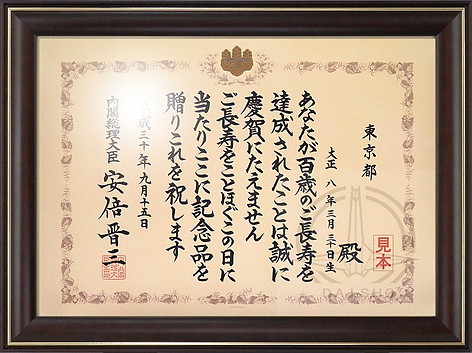 東京都
大正八年三月三十日生
殿
あなたが百歳のご長寿を
達成されたことは誠に
慶賀にたえません
ご長寿をことほぐこの日に
当たりここに記念品を
贈りこれを祝します
平成三十年九月十五日
内閣総理大臣 安倍晋三
見本
DAISHO